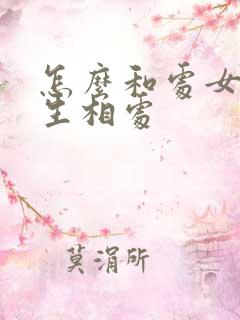 怎麼和處女
生相處
莫涓所